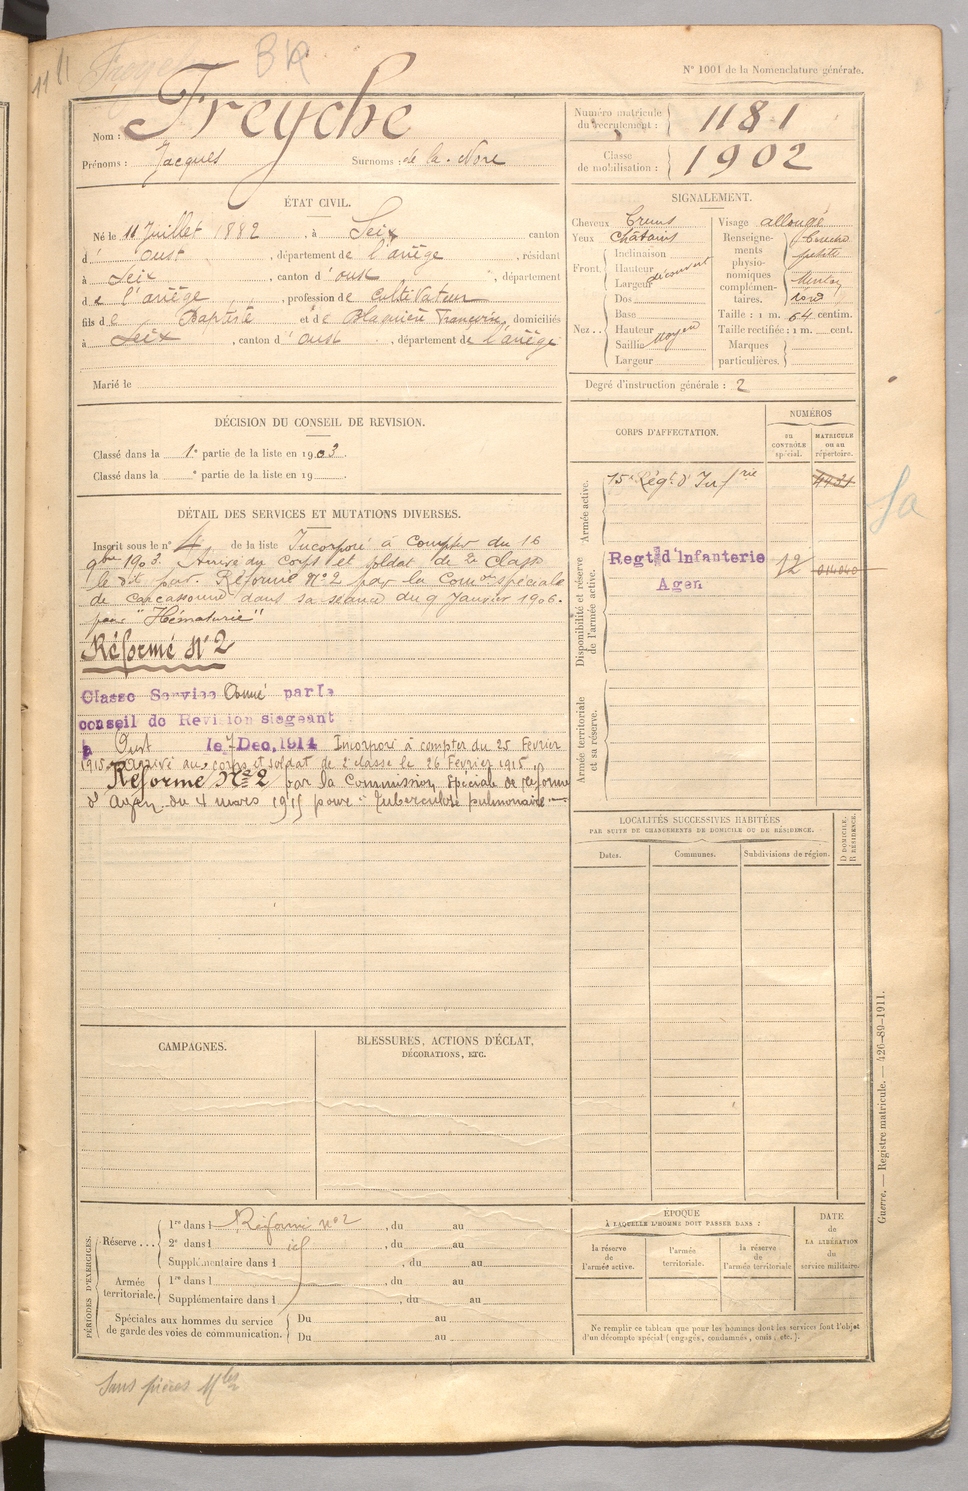 11
BR
N° 1001 de la Nomenclature générale.
Nom : Freyche
Prénoms : Jacques Surnoms : de la Nore
Numéro matricule du recrutement : 1181
Classe de mobilisation : 1902
ÉTAT CIVIL.
Né le 11 Juillet 1882, à Seix canton
d' Oust, département de l'ariège, résidant
à Seix, canton d'oust, département
de l'ariège, profession de Cultivateur
fils de Baptiste et de Françoise, domiciliés
à Seix, canton d'oust, département de l'ariège
Marié le
SIGNALEMENT.
Cheveux bruns
Yeux Châtains
Front. Inclinaison
Hauteur découvert
Largeur
Dos
Nez.. Base
Hauteur moyen
Saillie
Largeur
Visage allongé
Renseignements physionomiques complémentaires. Bouche petite Menton rond
Taille : 1 m. 64 centim.
Taille rectifiée : 1 m. cent.
Marques particulières.
Degré d'instruction générale : 2
DÉCISION DU CONSEIL DE REVISION.
Classé dans la 1e partie de la liste en 1903.
Classé dans la e partie de la liste en 19 .
DÉTAIL DES SERVICES ET MUTATIONS DIVERSES.
Inscrit sous le n° 4 de la liste Incorporé à compter du 16
9bre 1903. Arrivé au corps et soldat de 2e Classe
le dt jour. Réformé N°2 par la Comon spéciale
de Carcassonne dans sa séance du 9 Janvier 1906.
pour "Hématurie"
Réformé N°2
Classé Service Armé par le
conseil de Revision siegeant
à Oust le 7 Dec. 1914 Incorporé à compter du 25 Février
1915. Arrivé au corps et soldat de 2e classe le 26 Février 1915.
Réformé No 2 par la Commission Spéciale de réforme
d'Agen du 4 mars 1915 pour "Tuberculose pulmonaire"
CORPS D'AFFECTATION.
NUMÉROS
au CONTRÔLE spécial.
MATRICULE ou au répertoire.
Armée active.
15e Régt d'Infrie
Disponibilité et réserve de l'armée active.
Regt d'Infanterie
Agen
12
Armée territoriale et sa réserve.
LOCALITÉS SUCCESSIVES HABITÉES
PAR SUITE DE CHANGEMENTS DE DOMICILE OU DE RÉSIDENCE.
Dates.
Communes.
Subdivisions de région.
D DOMICILE. R RÉSIDENCE.
CAMPAGNES.
BLESSURES, ACTIONS D'ÉCLAT,
DÉCORATIONS, ETC.
PÉRIODES D'EXERCICES.
Réserve... 1re dans l Réformé n°2, du au
2e dans l id, du au
Supplémentaire dans l, du au
Armée territoriale. 1re dans l, du au
Supplémentaire dans l, du au
Spéciales aux hommes du service de garde des voies de communication. Du au
Du au
EPOQUE
À LAQUELLE L'HOMME DOIT PASSER DANS :
la réserve de l'armée active.
l'armée territoriale.
la réserve de l'armée territoriale
DATE
de
LA LIBÉRATION
du
service militaire.
Ne remplir ce tableau que pour les hommes dont les services font l'objet
d'un décompte spécial (engagés, condamnés, omis, etc.).
Guerre. — Registre matricule. — 426-89-1911.
Sans pièces Mles